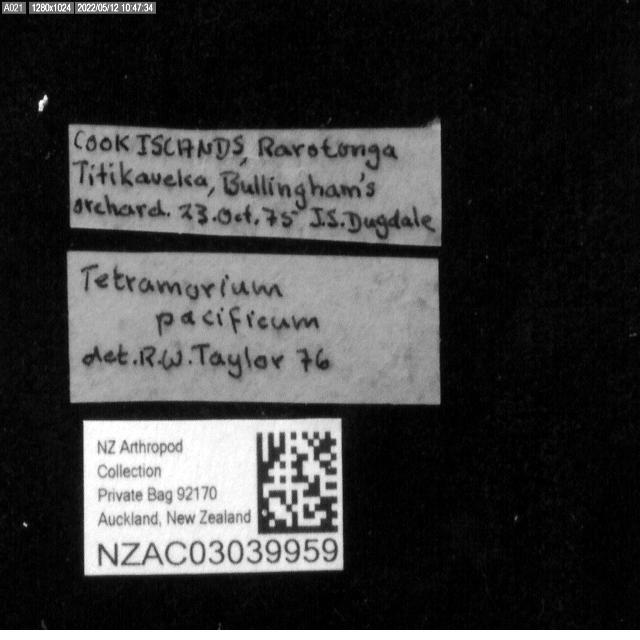 A021 1280x1024 2022/05/12 10:47:34
COOK ISLANDS, Rarotonga
Titikaveka, Bullingham's
orchard. 23.Oct.75 J.S.Dugdale
Tetramorium
pacificum
det.R.W.Taylor 76
NZ Arthropod
Collection
Private Bag 92170
Auckland, New Zealand
NZAC03039959